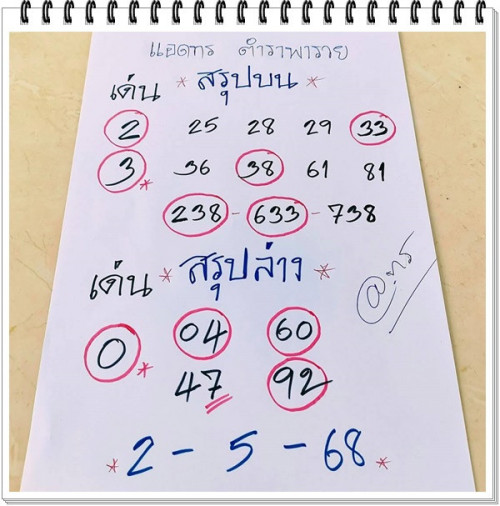 แอดทร ตำราพารวย
เด่น * สรุปบน *
2 25 28 29 33
3* 36 38 61 81
238 - 633 - 738
เด่น * สรุปล่าง *
@ทร
0* 04 60
47 92
* 2 - 5 - 68 *